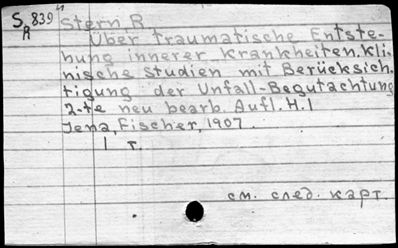 S 839 Stern R
R Über traumatische Entste-
hung innerer Krankheiten. Kli-
nische Studien mit Berücksich-
tigung der Unfall-Begutachtung
2-te neu bearb. Aufl. H. I
Jena, Fischer, 1907.
1 т.
см. след. карт.